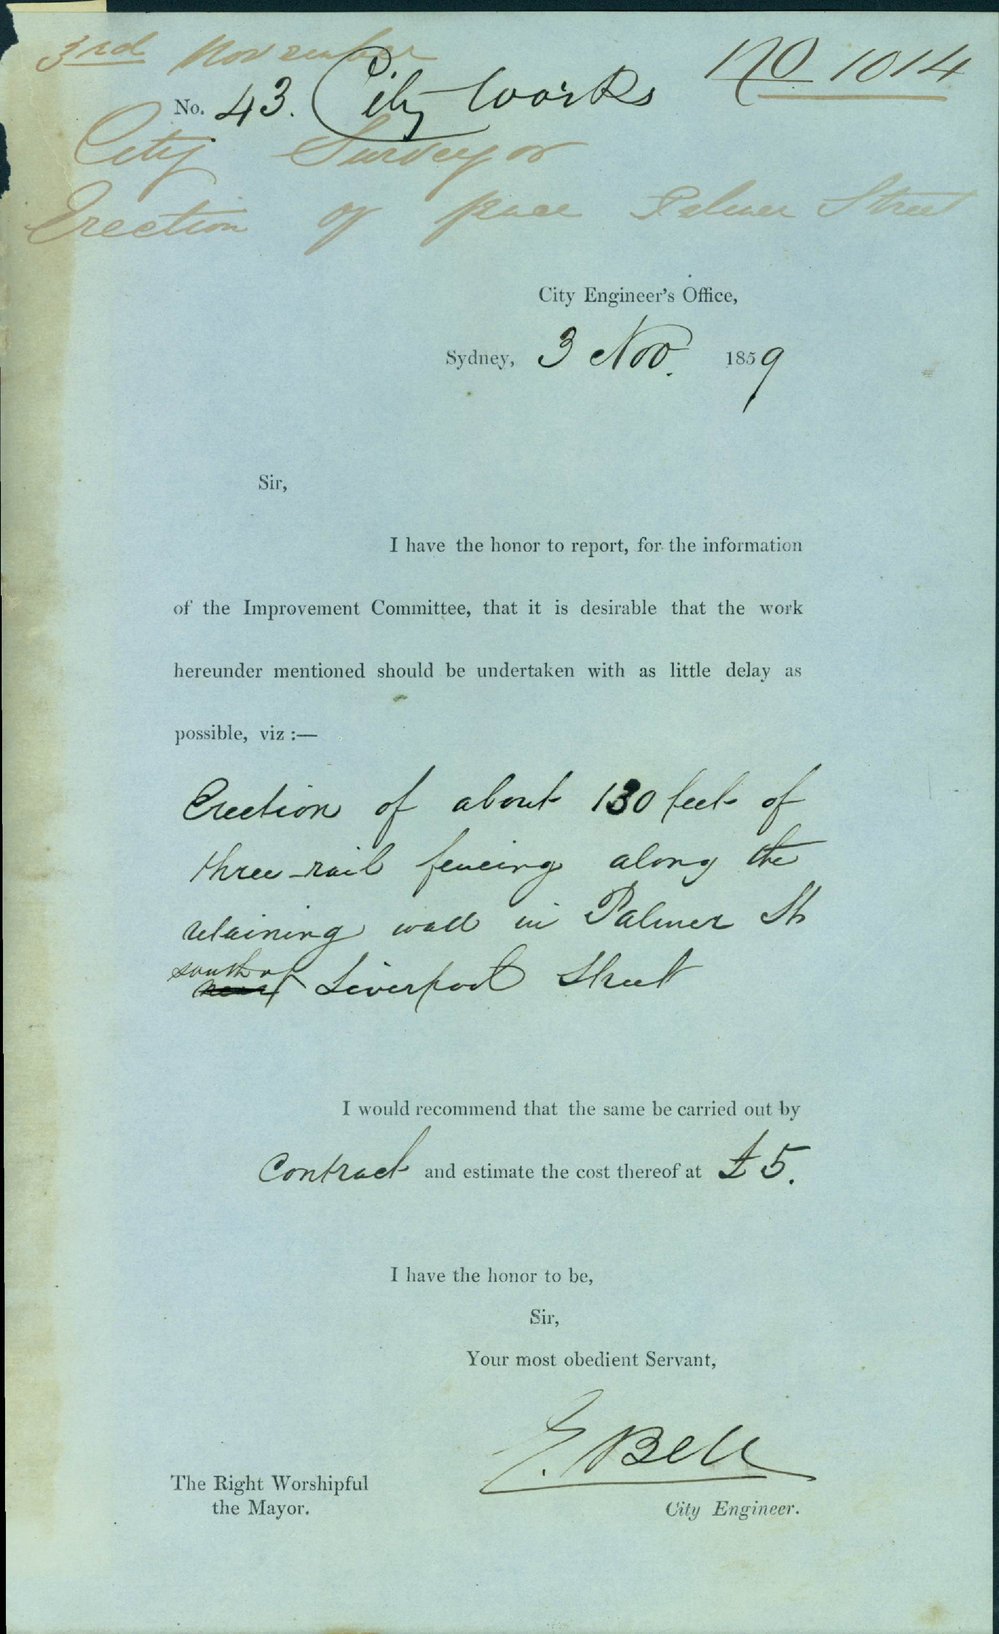 3rd November
No 1014
No. 43. City Works
City Surveyor
Erection of Palmer Street
City Engineer's Office,
Sydney, 3 Nov. 1859
Sir,
I have the honor to report, for the information
of the Improvement Committee, that it is desirable that the work
hereunder mentioned should be undertaken with as little delay as
possible, viz :—
Erection of about 130 feet of
three-rail fencing along the
retaining wall in Palmer St
south of
Liverpool Street
I would recommend that the same be carried out by
Contract and estimate the cost thereof at £5.
I have the honor to be,
Sir,
Your most obedient Servant,
E. Bell
The Right Worshipful
the Mayor.
City Engineer.